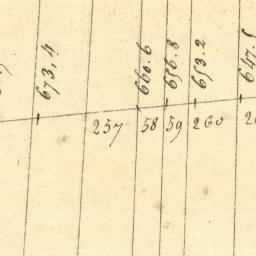 673,4
660.6
656.8
653.2
257 58 59 260